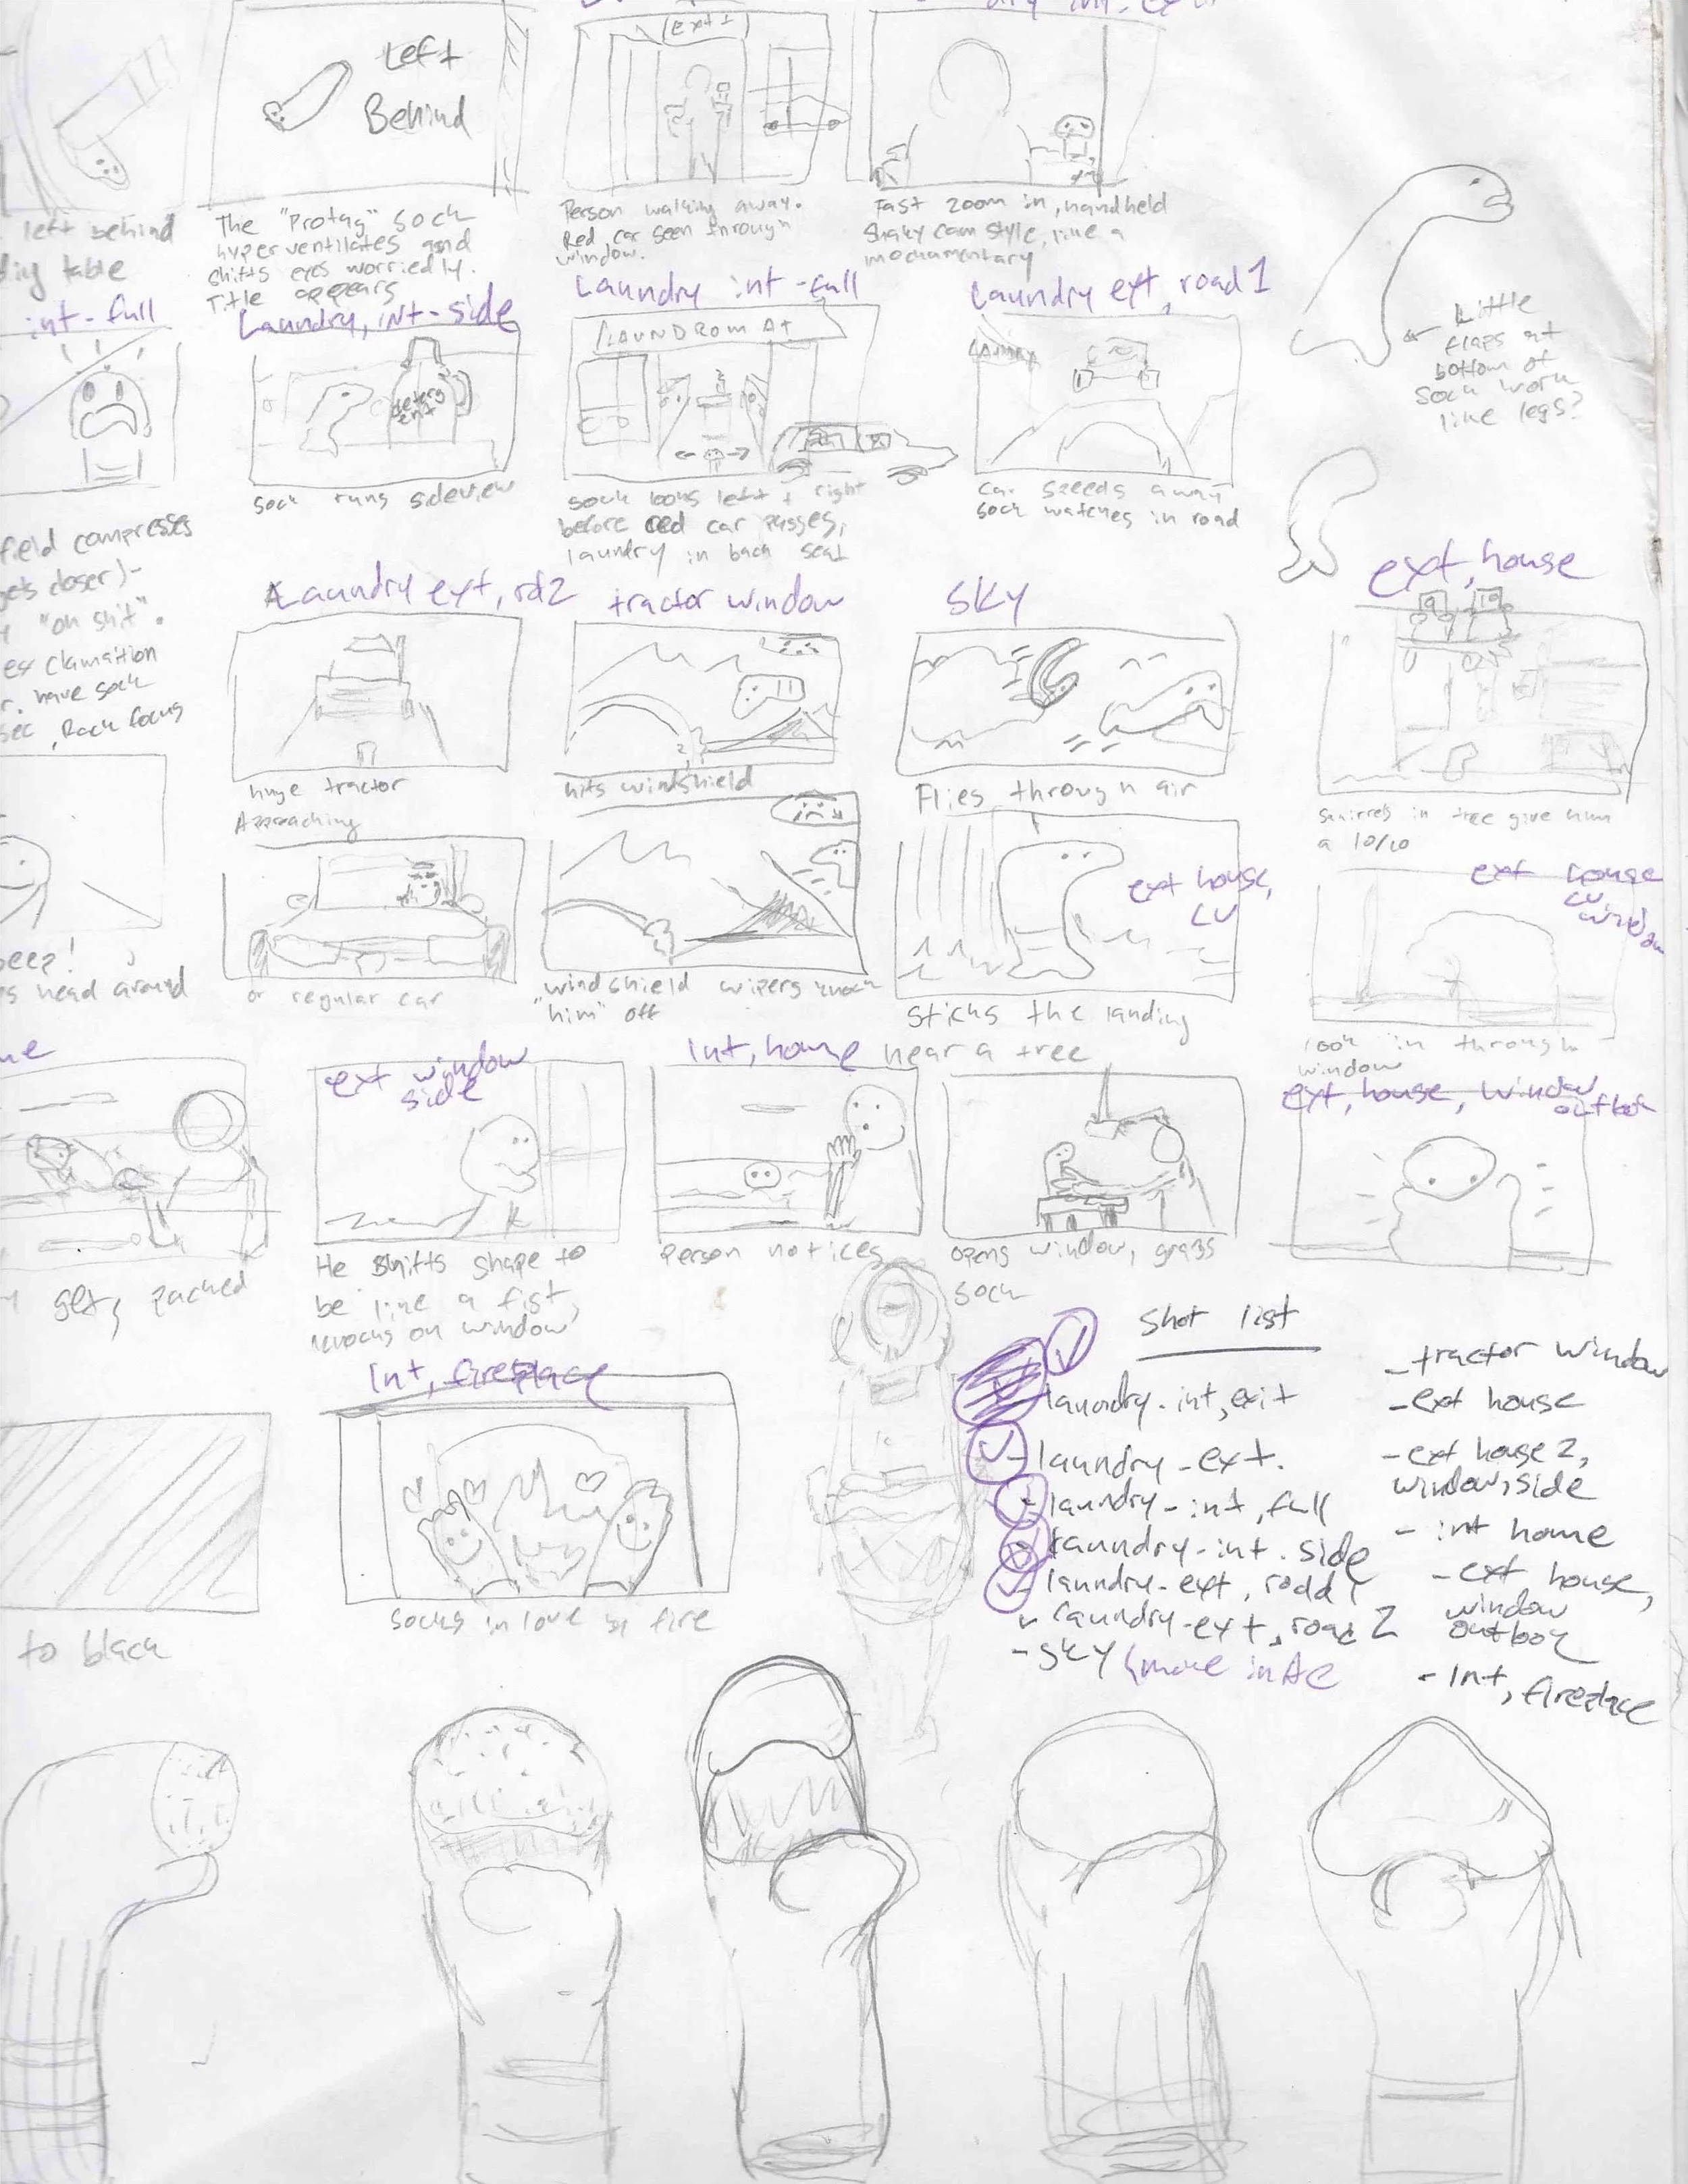 Left
Behind
Ext
left behind
table
The "Protag" sock
hyperventilates and
shifts eyes worriedly.
Title appears
Person walking away.
Red car seen through
window.
Fast zoom in, handheld
Shaky cam style, like a
mochumentary
int-full
Laundry, int-side
Laundry int-full
Laundry ext, road 1
Little
flaps at
bottom of
sock work
like legs?
deterg
ent
LAUNDROMAT
Sock runs sideview
Sock looks left + right
before red car passes,
laundry in back seat
Car speeds away
sock watches in road
field compresses
gets closer)-
"oh shit".
exclamation
r. have sock
sec, Rack focus
Laundry ext, rd2
tractor window
Sky
ext, house
9
10
huge tractor
Approaching
hits windshield
Flies through air
Squirrels in tree give him
a 10/10
ext house,
CU
ext house
CU
window
eep!
s head around
or regular car
"windshield wipers knock
"him" off
Sticks the landing
near a tree
look in through
window
me
ext window
side
Int, home
ext, house, window
outbok
get, packed
He shifts shape to
be like a fist,
knocks on window
Person notices
opens window, grabs
sock
Int, fireplace
Socks in love by fire
to black
Shot list
laundry-int, exit
- laundry-ext.
- laundry-int, full
laundry-int. side
- laundry-ext, road 1
- laundry-ext, road 2
- sky (move in AE
- tractor window
- ext house
- ext house 2,
window, side
- int home
- ext house,
window
outbok
- Int, fireplace